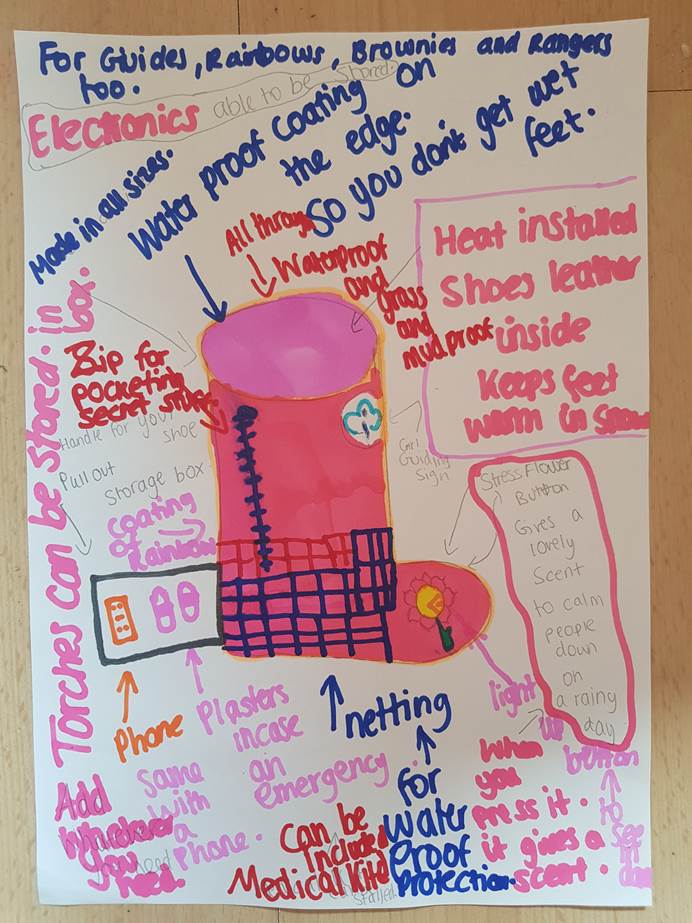 For Guides, Rainbows, Brownies and Rangers
too.
Electronics able to be stored.
Made in all sizes.
Water proof coating on
the edge.
So you don't get wet
feet.
All through
Waterproof
and
grass
and
mud proof
Heat installed
Shoes leather
inside
Keeps feet
warm in snow
Torches can be stored in
box.
Zip for
pocketing
secret stuff
Handle for your
shoe
Pull out
Storage box
Coating
of
Rainbow
Girl
Guiding
Sign
Stress Flower
Button
Gives a
lovely
Scent
to calm
people
down
on
a rainy
day
Phone
Plasters
incase
an
emergency.
Same
with
a
phone.
Add
whatever
you
need.
netting
for
water
proof
protection.
Can be
Included
Medical Kits
light
up
button
to
see
in
When
you
press it.
it gives a
scent.